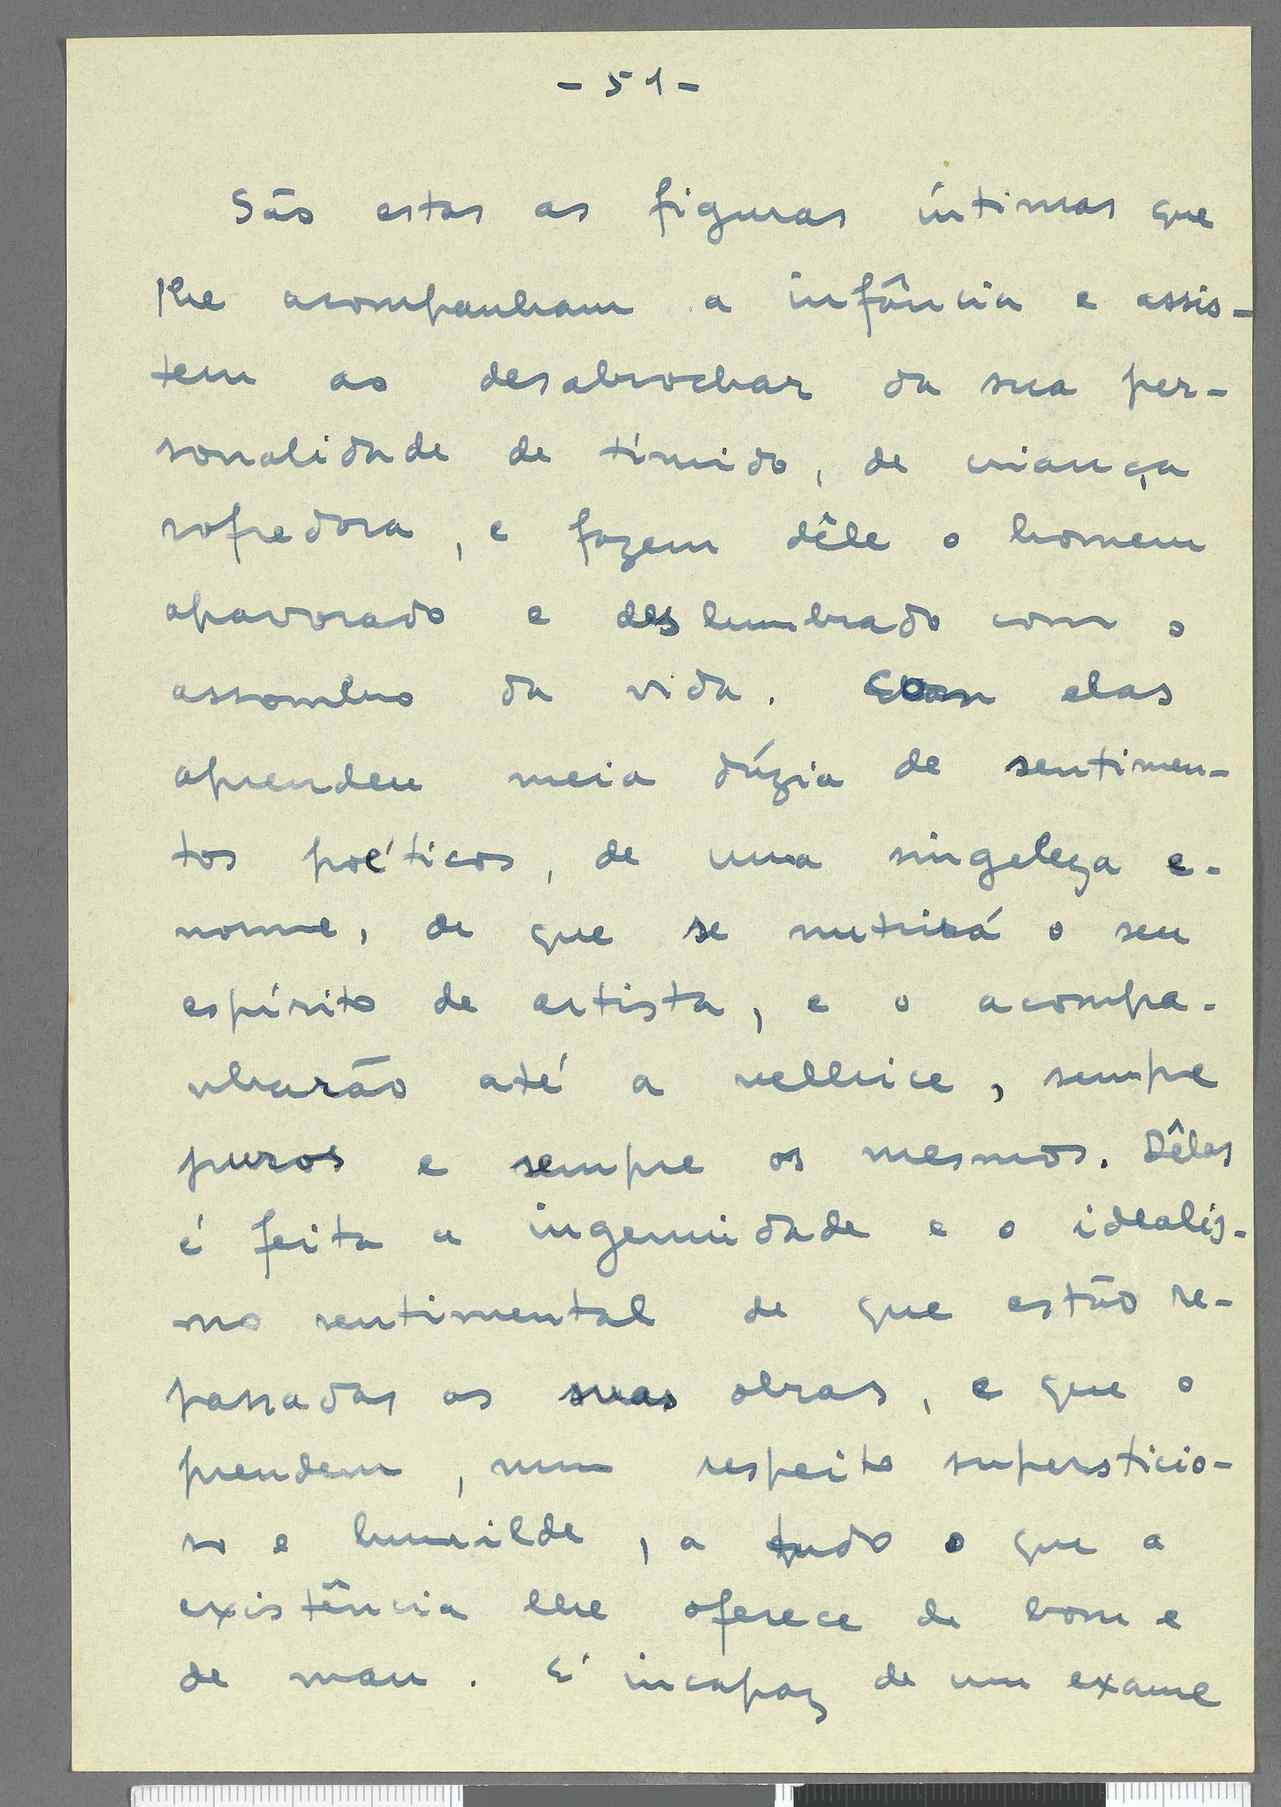 - 51 -
São estas as figuras íntimas que
lhe acompanham a infância e assis-
tem ao desabrochar da sua per-
sonalidade de tímido, de criança
sofredora, e fazem dêle o homem
apavorado e deslumbrado com o
assombro da vida. Com elas
aprendeu meia dúzia de sentimen-
tos poéticos, de uma singeleza e-
norme, de que se nutrirá o seu
espírito de artista, e o acompa-
nharão até a velhice, sempre
puros e sempre os mesmos. Dêles
é feita a ingenuidade e o idealis-
mo sentimental de que estão re-
passadas as suas obras, e que o
prendem, num respeito supersticio-
so e humilde, a tudo o que a
existência lhe oferece de bom e
de mau. É incapaz de um exame